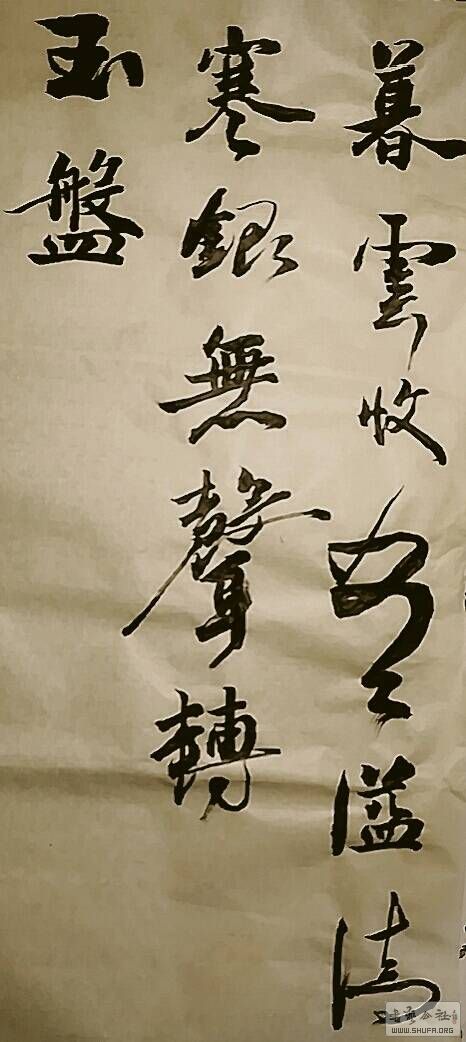 暮雲收盡溢清
寒銀無聲轉
玉盤
書藝公社
WWW.SHUFA.ORG